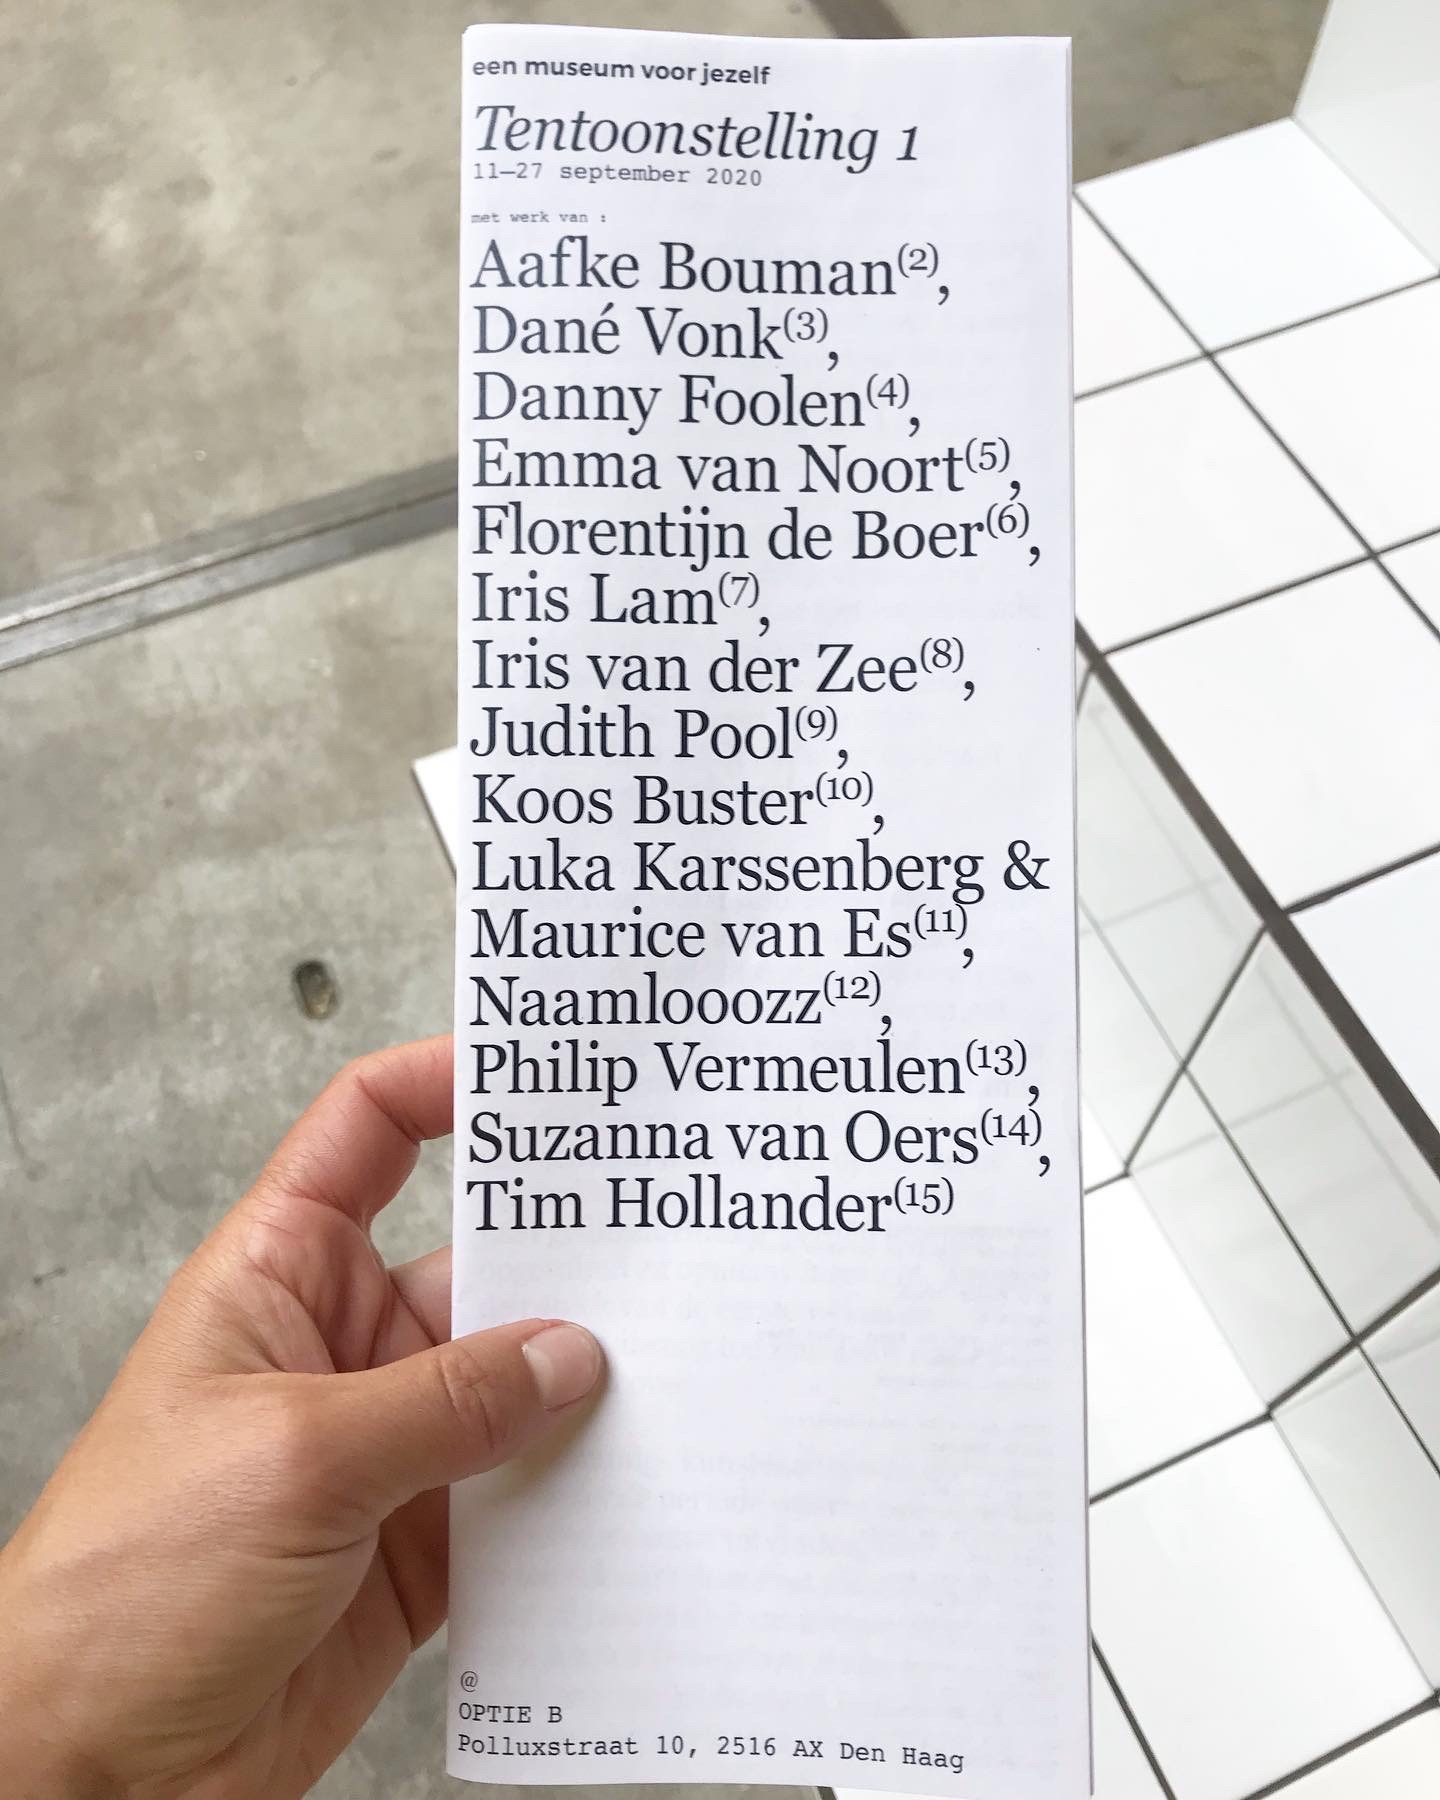 een museum voor jezelf
Tentoonstelling 1
11–27 september 2020
met werk van :
Aafke Bouman(2),
Dané Vonk(3),
Danny Foolen(4),
Emma van Noort(5),
Florentijn de Boer(6),
Iris Lam(7),
Iris van der Zee(8),
Judith Pool(9),
Koos Buster(10),
Luka Karssenberg &
Maurice van Es(11),
Naamlooozz(12),
Philip Vermeulen(13),
Suzanna van Oers(14),
Tim Hollander(15)
@
OPTIE B
Polluxstraat 10, 2516 AX Den Haag